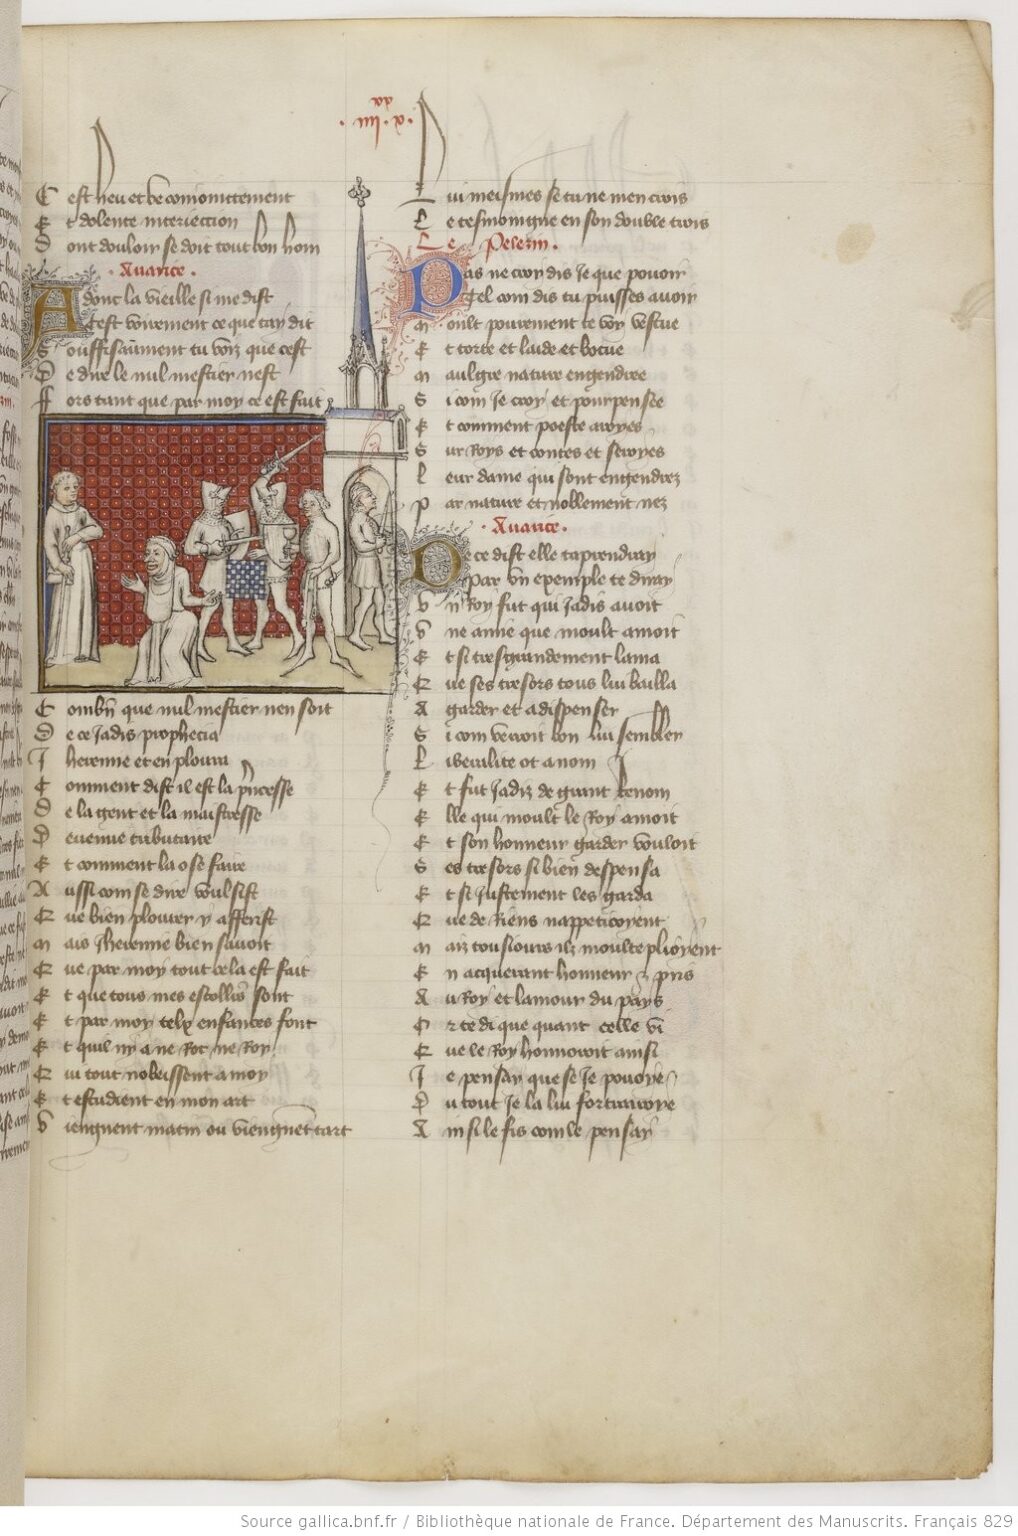 .x.iiii.
xx
C est heu et be comoniutement
E t dolente interiection
D ont douloir se doit tout bon hom
.Auarice.
Adonc la vieille si me dist
C est voirement ce que tay dit
S ouffisaument tu voiz que cest
D e dire le mil mestier nest
F ors tant que par moy ce est fait
C ombn que mil mestier nen soit
D e ce Jadis prophecia
J heremie et en ploura
C omment dist il est la pncesse
D e la gent et la maistresse
D euenue tributaire
E t comment la ose faire
A ussi com se dire voulsist
Q ue bien plourer y afferist
M ais Jheremie bien sauoit
Q ue par moy tout cela est fait
E t que tous mes escolliers sont
E t par moy telx enfances font
E t quil ny a ne Roc ne Roy
Q ui tout nobeissent a moy
E t estudient en mon art
V iengnent matin ou viengnet tart
L ui meismes se tu ne men crois
L e tesmoingne en son double trois
Le Pelerin.
Pas ne croy dis Je que pouoir
Tel com dis tu puisses auoir
M oult pourement te voy vestue
E t torte et laide et bocue
M aulgre nature engendree
S i com Je croy et pourpensee
E t comment poeste aroyes
S ur Roys et contes et seroyes
L eur dame qui sont engendrez
P ar nature et noblement nez
.Auarice.
De ce dist elle taprendray
Par vn exemple te diray
V n Roy fut qui Jadis auoit
V ne amie que moult amoit
E t si tresgrandement lama
Q ue ses tresors tous lui bailla
A garder et a dispenser
S i com verroit bon lui sembler
L iberalite ot a nom
E t fut Jadiz de grant Renom
E lle qui moult le Roy amoit
E t son honneur garder vouloit
S es tresors si bien despensa
E t si Justement les garda
Q ue de Riens nappeticoyent
M aiz tousiours ilz moulteplioyent
E n acquerant honneur & pris
A u Roy et lamour du pays
O r te di que quant celle vi
Q ue le Roy honnoroit ainsi
J e pensay que se Je pouoye
D u tout Je la lui fortrairoye
A insi le fis com le pensay
Source gallica.bnf.fr / Bibliothèque nationale de France. Département des Manuscrits. Français 829